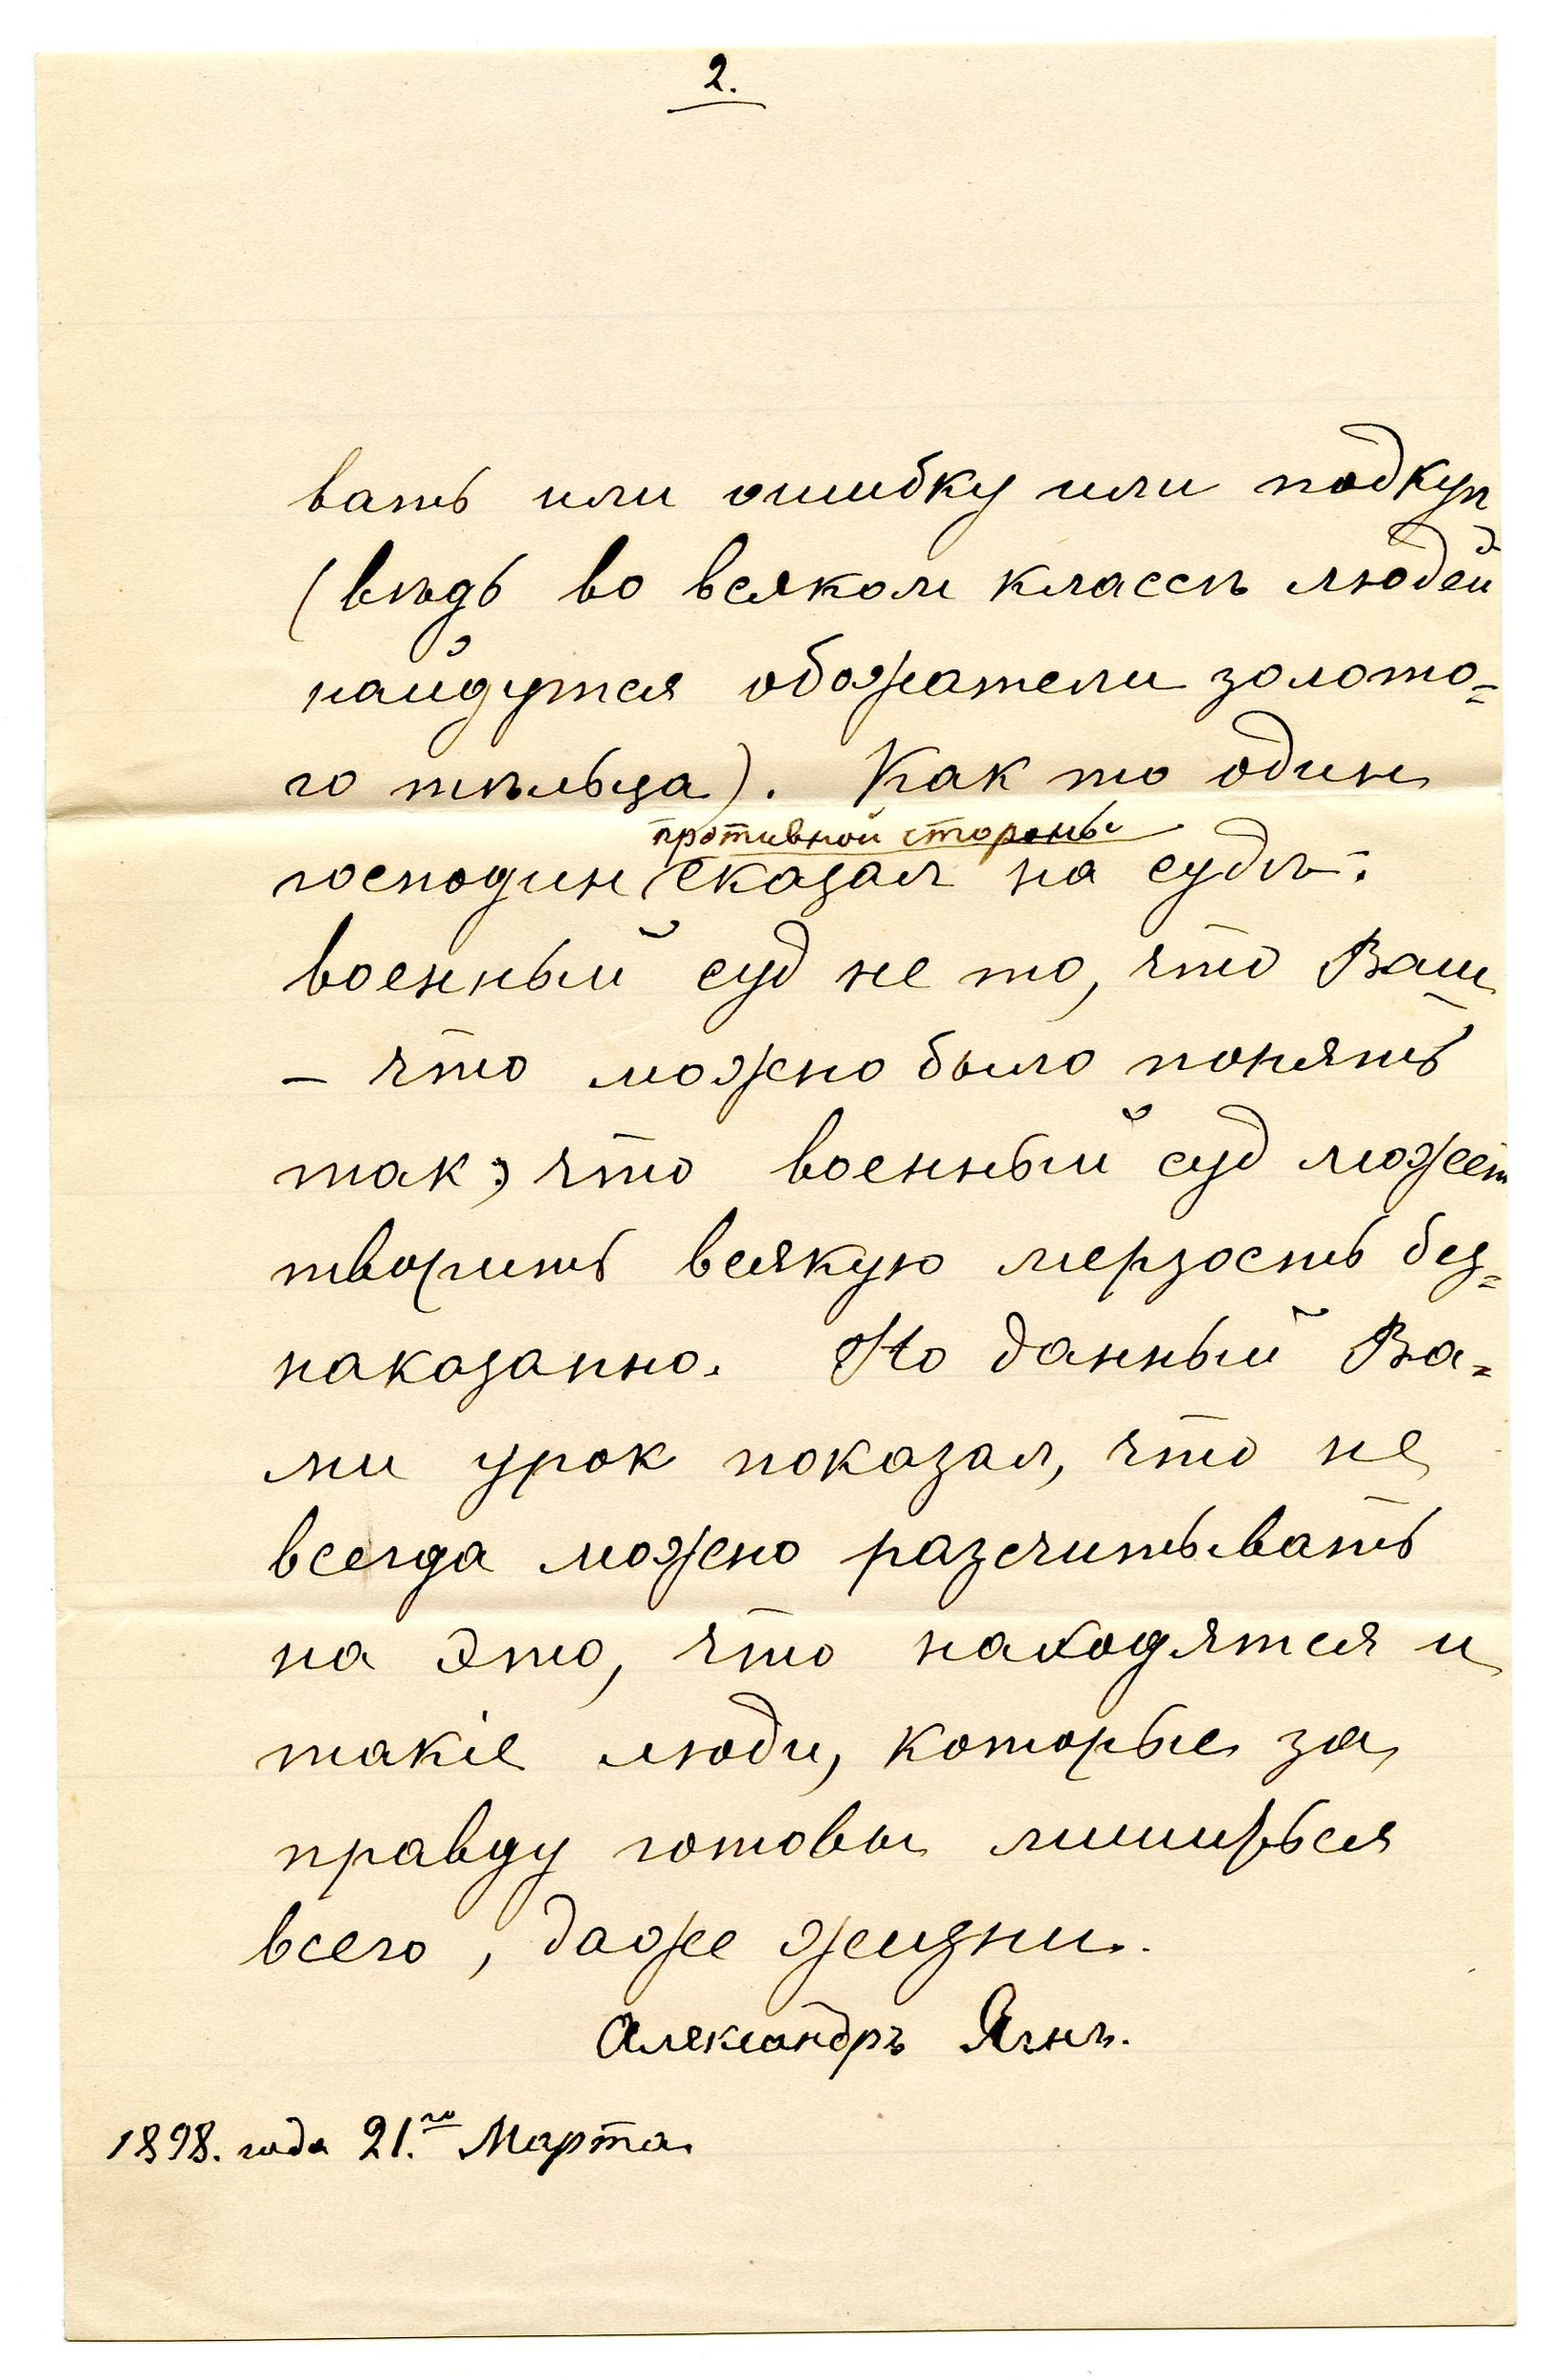 2.
вать или ошибку или подкуп
(вѣдь во всяком классѣ людей
найдутся обожатели золото=
го тѣльца). Как то один
противной стороны
господин сказал на судѣ:
военный суд не то, что Ваш
– что можно было понять
так: что военный суд может
творить всякую мерзость без=
наказанно. Но данный Ва=
ми урок показал, что не
всегда можно разсчитывать
на это, что находятся и
такіе люди, которые за
правду готовы лишиться
всего, даже жизни.
Александръ
1898. года 21.го Марта